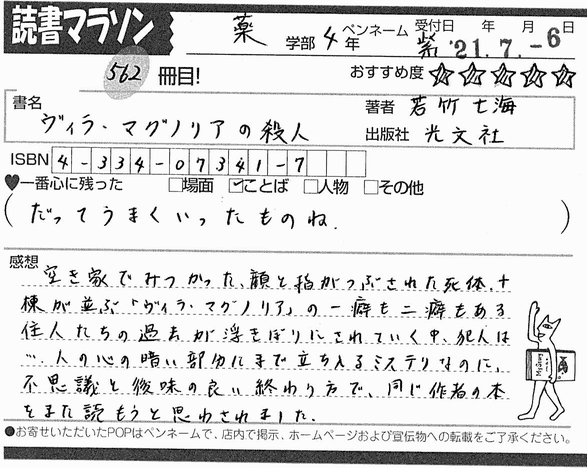 読書マラソン
薬 学部 4年 ペンネーム 紫 受付日 年 月 日
'21.7.-6
562 冊目!
おすすめ度 ☆☆☆☆☆
書名 ヴィラ・マグノリアの殺人
著者 若竹七海
出版社 光文社
ISBN 4-334-07341-7
♥一番心に残った □場面 ☑ことば □人物 □その他
(だってうまくいったものね.)
感想
空き家でみつかった、顔と指がつぶされた死体。十
棟が並ぶ「ヴィラ・マグノリア」の一癖も二癖もある
住人たちの過去が浮きぼりにされていく中、犯人は
…。人の心の暗い部分にまで立ち入るミステリなのに、
不思議と後味の良い終わり方で、同じ作者の本
をまた読もうと思わされました.
●お寄せいただいたPOPはペンネームで、店内で掲示、ホームページおよび宣伝物への転載をご了承ください。